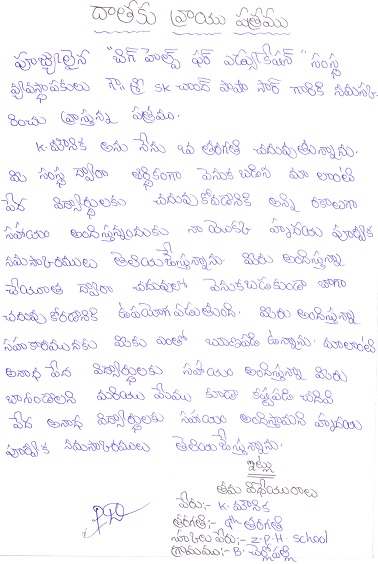 దాతకు వ్రాయు పత్రము
పూజ్యులైన "బిగ్ హెల్ప్ ఫర్ ఎడ్యుకేషన్" సంస్థ
వ్యవస్థాపకులు గౌ॥శ్రీ sk చాంద్ పాషా సార్ గారికి నమస్క
రించి వ్రాస్తున్న పత్రము.
K. మౌనిక అను నేను 9వ తరగతి చదువుతున్నాను.
మీ సంస్థ ద్వారా ఆర్థికంగా వెనుకబడిన మా లాంటి
పేద విద్యార్థులకు చదువుకోడానికి అన్ని రకాలుగా
సహాయం అందిస్తున్నందుకు నా యొక్క హృదయ పూర్వక
నమస్కారములు తెలియచేస్తున్నాను. మీరు అందిస్తున్న
చేయూత ద్వారా చదువులో వెనుకబడకుండా బాగా
చదువు కోడానికి ఉపయోగపడుతుంది. మీరు అందిస్తున్న
సహకారమునకు మీకు ఎంతో ఋణపడి ఉన్నాను. మాలాంటి
అనాథ పేద విద్యార్థులకు సహాయం అందిస్తున్న మీరు
బాగుండాలని మరియు మేము కూడా కష్టపడి చదివి
పేద అనాథ విద్యార్థులకు సహాయం అందిస్తామని హృదయ
పూర్వక నమస్కారములు తెలియచేస్తున్నాను.
ఇట్లు
తమ విధేయురాలు
పేరు:- K. మౌనిక
తరగతి:- 9th తరగతి
స్కూలు పేరు:- Z.P.H. school
గ్రామము:- B. చెర్లోపల్లి